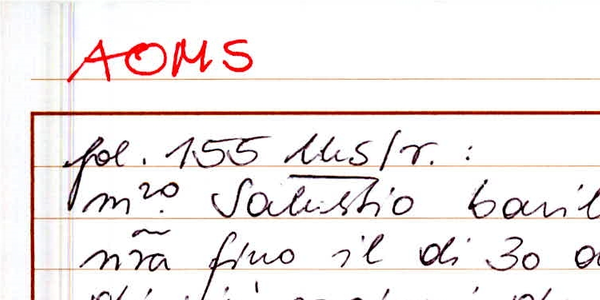 AOMS
fol. 155 Ms/r. :
m.ro Salustio baril
nr̃a fino il di 30